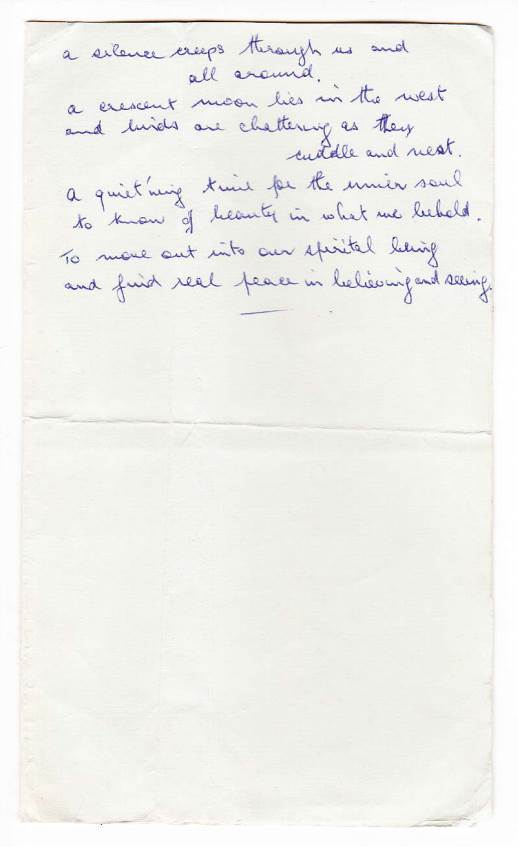 a silence creeps through us and
all around.
a crescent moon lies in the west
and birds are chattering as they
cuddle and nest.
a quiet'ning time for the inner soul
to know of beauty in what we behold.
To move out into our spirital being
and find real peace in believing and seeing.